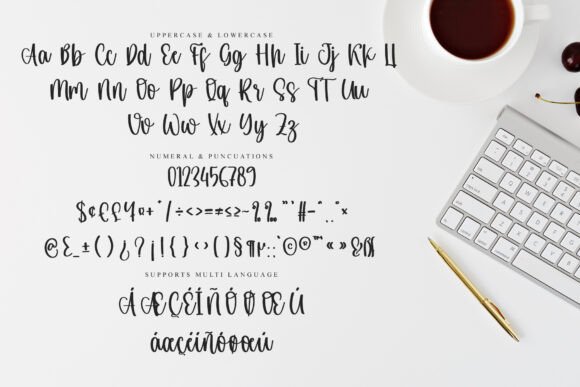 UPPERCASE & LOWERCASE
Aa Bb Cc Dd Ee Ff Gg Hh Ii Jj Kk Ll
Mm Nn Oo Pp Qq Rr Ss TT Uu
Vv Ww Xx Yy Zz
NUMERAL & PUNCUATIONS
0123456789
SUPPORTS MULTI LANGUAGE
ÁÆÇÉÍÑÓØŒÚ
áæçéíñóøœú